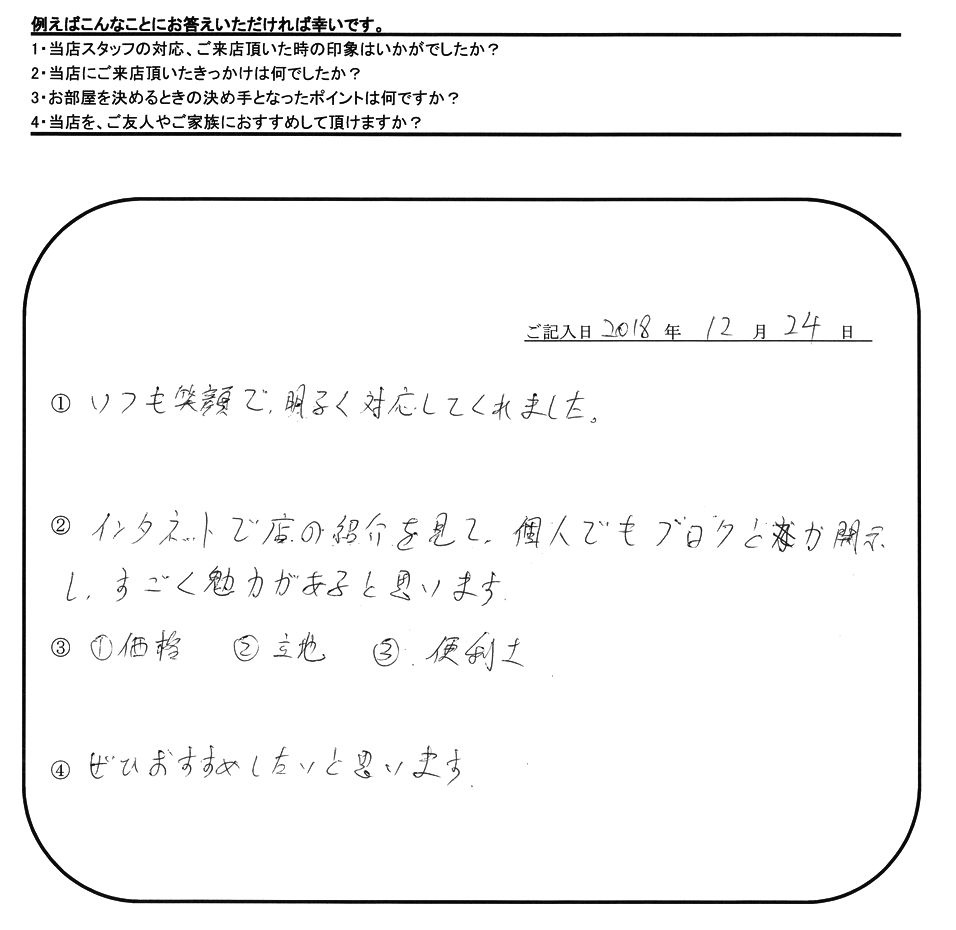 例えばこんなことにお答えいただければ幸いです。
1・当店スタッフの対応、ご来店頂いた時の印象はいかがでしたか？
2・当店にご来店頂いたきっかけは何でしたか？
3・お部屋を決めるときの決め手となったポイントは何ですか？
4・当店を、ご友人やご家族におすすめして頂けますか？
ご記入日 2018 年 12 月 24 日
① いつも笑顔で、明るく対応してくれました。
② インタネットで店の紹介を見て、個人でもブログと か開示
し、すごく魅力があると思います.
③ ①価格 ② 立地 ③ 便利士
④ ぜひおすすめしたいと思います.